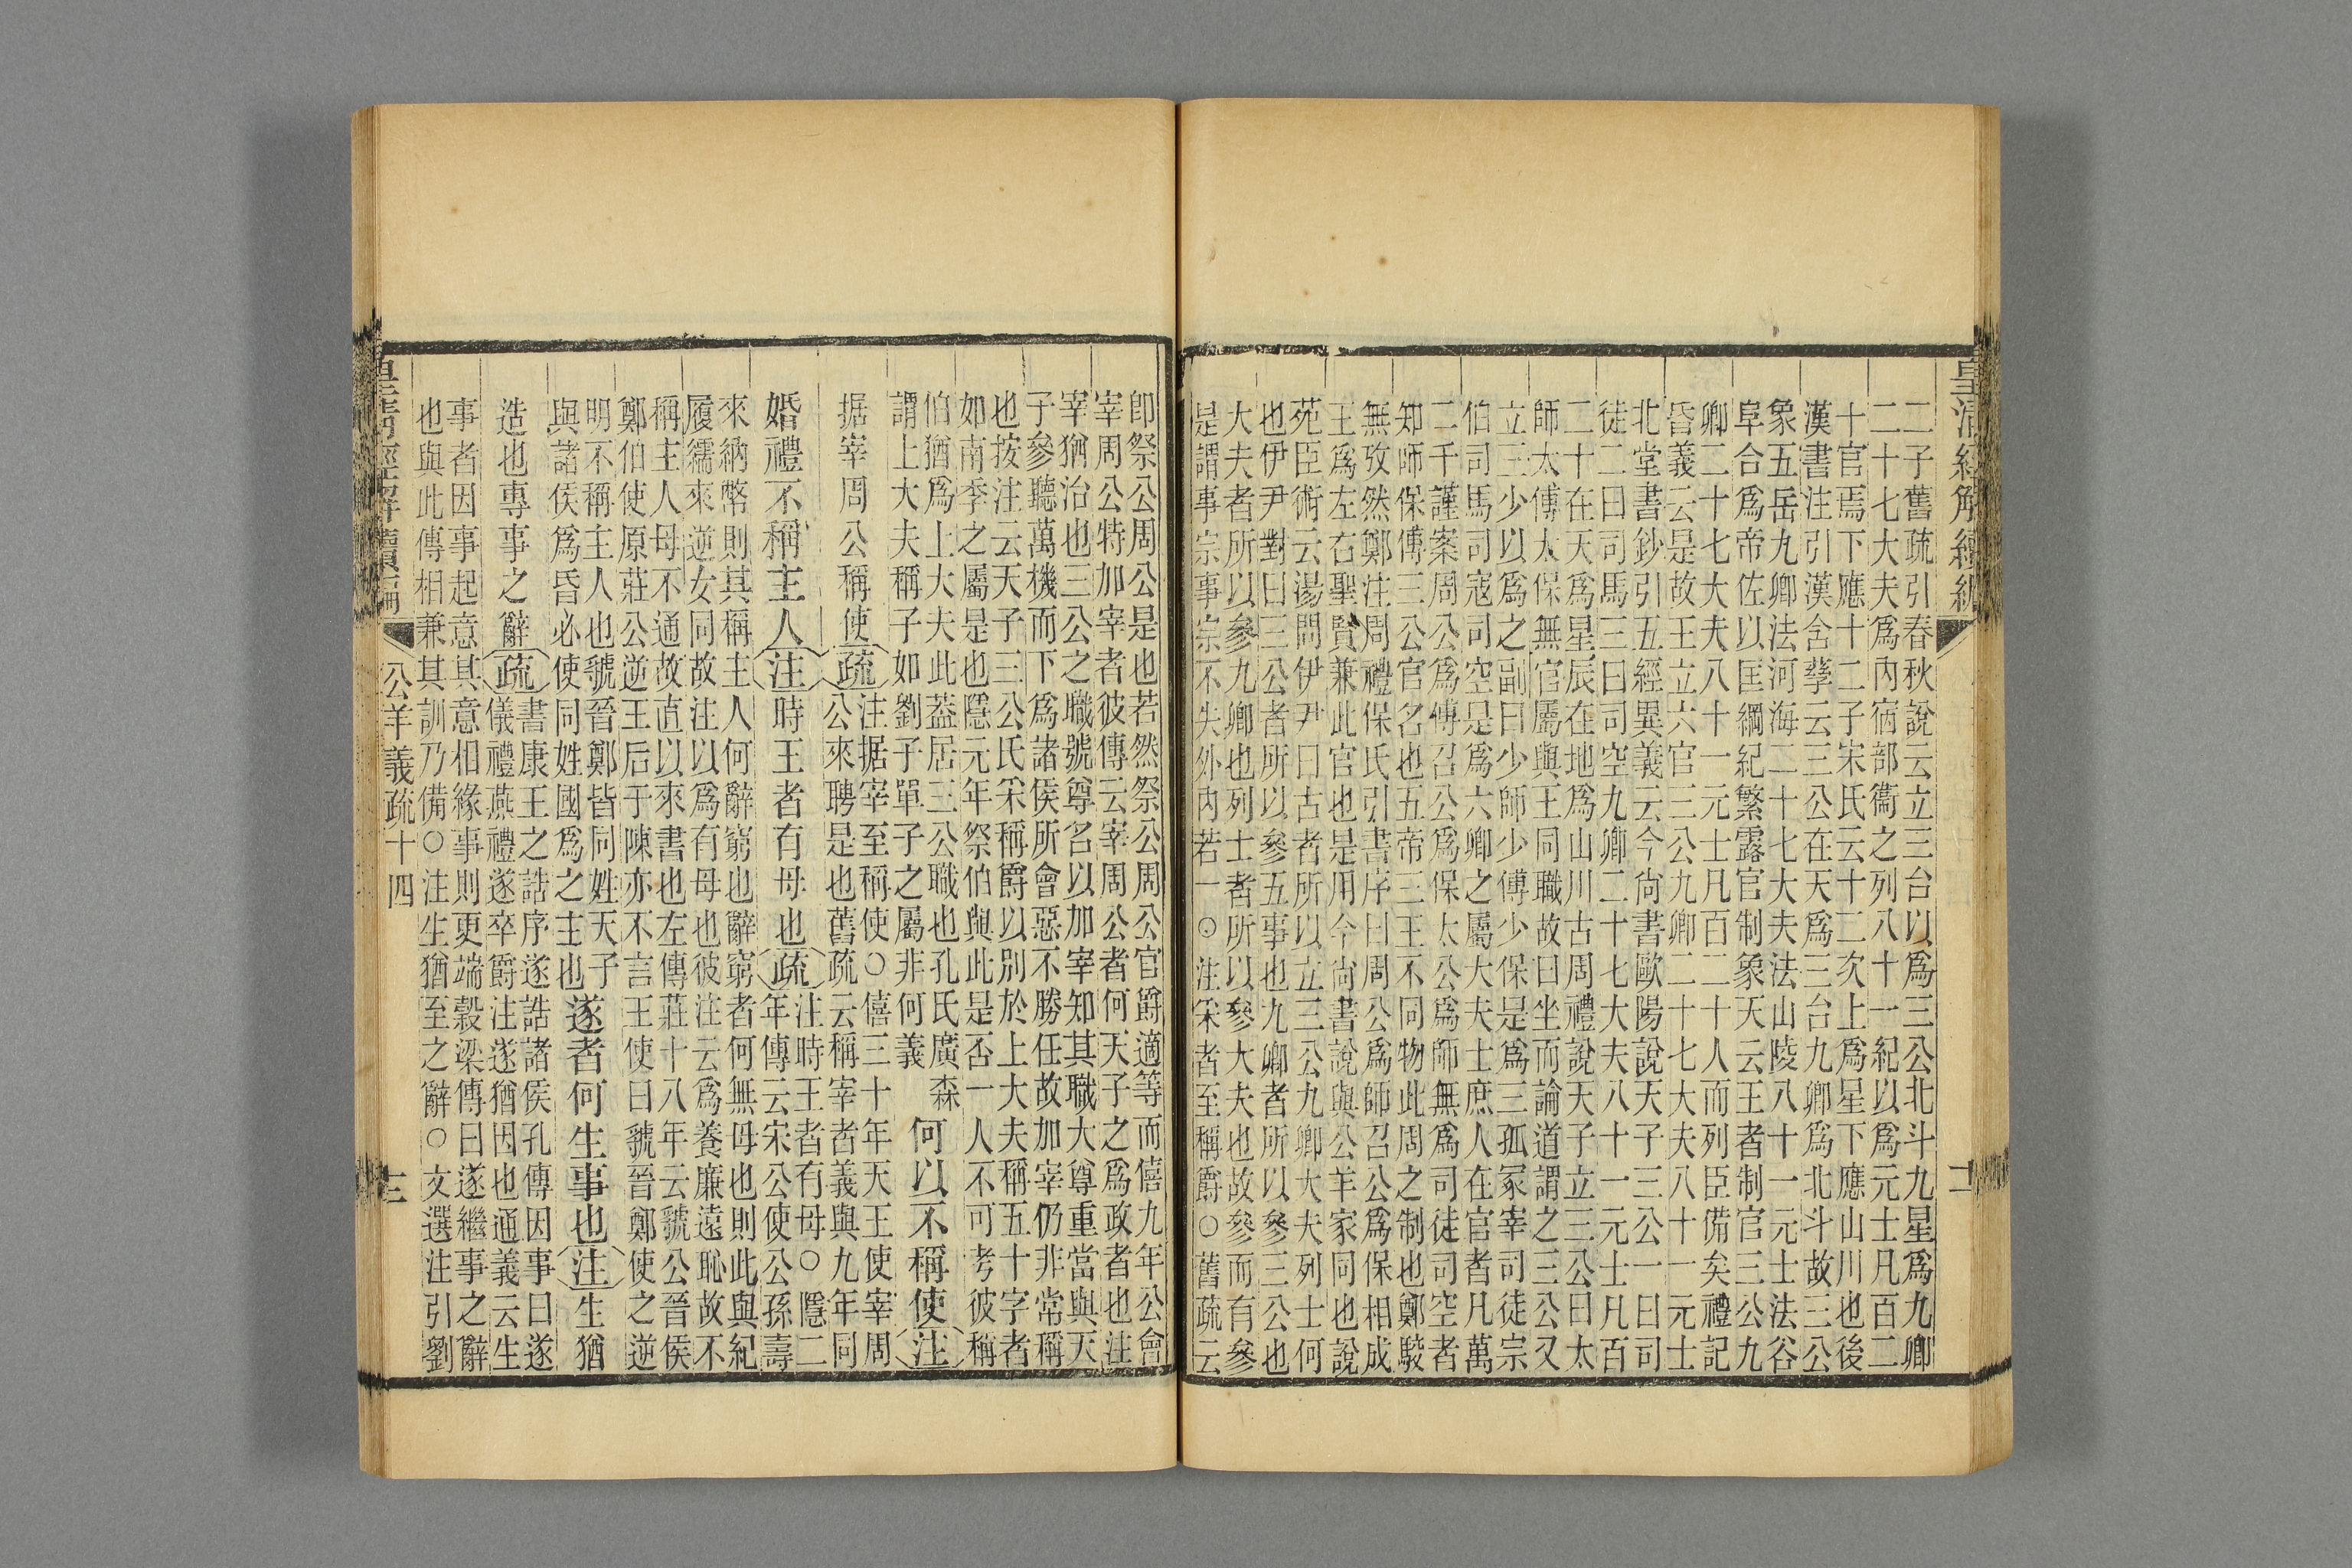 皇清經解續編
二子舊疏引春秋說云立三台以爲三公北斗九星爲九卿
二十七大夫爲內宿部衞之列八十一紀以爲元士凡百二
十官焉下應十二子宋氏云十二次上爲星下應山川也後
漢書注引漢含孳云三公在天爲三台九卿爲北斗故三公
象五岳九卿法河海二十七大夫法山陵八十一元士法谷
阜合爲帝佐以匡綱紀繁露官制象天云王者制官三公九
卿二十七大夫八十一元士凡百二十人而列臣備矣禮記
昏義云是故王立六官三公九卿二十七大夫八十一元士
北堂書鈔引五經異義云今尙書歐陽說天子三公一曰司
徒二曰司馬三曰司空九卿二十七大夫八十一元士凡百
二十在天爲星辰在地爲山川古周禮說天子立三公曰太
師太傅太保無官屬與王同職故曰坐而論道謂之三公又
立三少以爲之副曰少師少傅少保是爲三孤冢宰司徒宗
伯司馬司寇司空是爲六卿之屬大夫士庶人在官者凡萬
二千謹案周公爲傅召公爲保太公爲師無爲司徒司空者
知師保傅三公官名也五帝三王不同物此周之制也鄭駮
無攷然鄭注周禮保氏引書序曰周公爲師召公爲保相成
王爲左右聖賢兼此官也是用今尙書說與公羊家同也說
苑臣術云湯問伊尹曰古者所以立三公九卿大夫列士何
也伊尹對曰三公者所以參五事也九卿者所以參三公也
大夫者所以參九卿也列士者所以參大夫也故參而有參
是謂事宗事宗不失外內若一○注宋者至稱爵○舊疏云
卽祭公周公是也若然祭公周公官爵適等而僖九年公會
宰周公特加宰者彼傳云宰周公者何天子之爲政者也注
宰猶治也三公之職號尊名以加宰知其職大尊重當與天
子參聽萬機而下爲諸侯所會惡不勝任故加宰仍非常稱
也按注云天子三公氏采稱爵以別於上大夫稱五十字者
如南季之屬是也隱元年祭伯與此是否一人不可考彼稱
伯猶爲上大夫此葢居三公職也孔氏廣森
謂上大夫稱子如劉子單子之屬非何義
何以不稱使注
据宰周公稱使疏
注据宰至稱使○僖三十年天王使宰周
公來聘是也舊疏云稱宰者義與九年同
婚禮不稱主人注時王者有母也疏
注時王者有母○隱二
年傳云宋公使公孫壽
來納幣則其稱主人何辭窮也辭窮者何無母也則此與紀
履繻來逆女同故注以爲有母也彼注云爲養廉遠恥故不
稱主人母不通故直以來書也左傳莊十八年云虢公晉侯
鄭伯使原莊公逆王后于陳亦不言王使曰虢晉鄭使之逆
明不稱主人也虢晉鄭皆同姓天子
與諸侯爲昏必使同姓國爲之主也
遂者何生事也注生猶
造也專事之辭疏
書康王之誥序遂誥諸侯孔傳因事曰遂
儀禮燕禮遂卒爵注遂猶因也通義云生
事者因事起意其意相緣事則更端穀梁傳曰遂繼事之辭
也與此傳相兼其訓乃備○注生猶至之辭○文選注引劉
皇清經解續編
公羊義疏十四